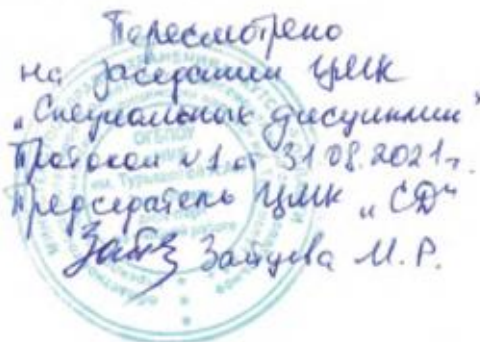 Пересмотрено
на заседании ЦМК
"Специальных дисциплин"
Протокол №1 от 31.08.2021г.
Председатель ЦМК "СД"
Зайцева М.Р.